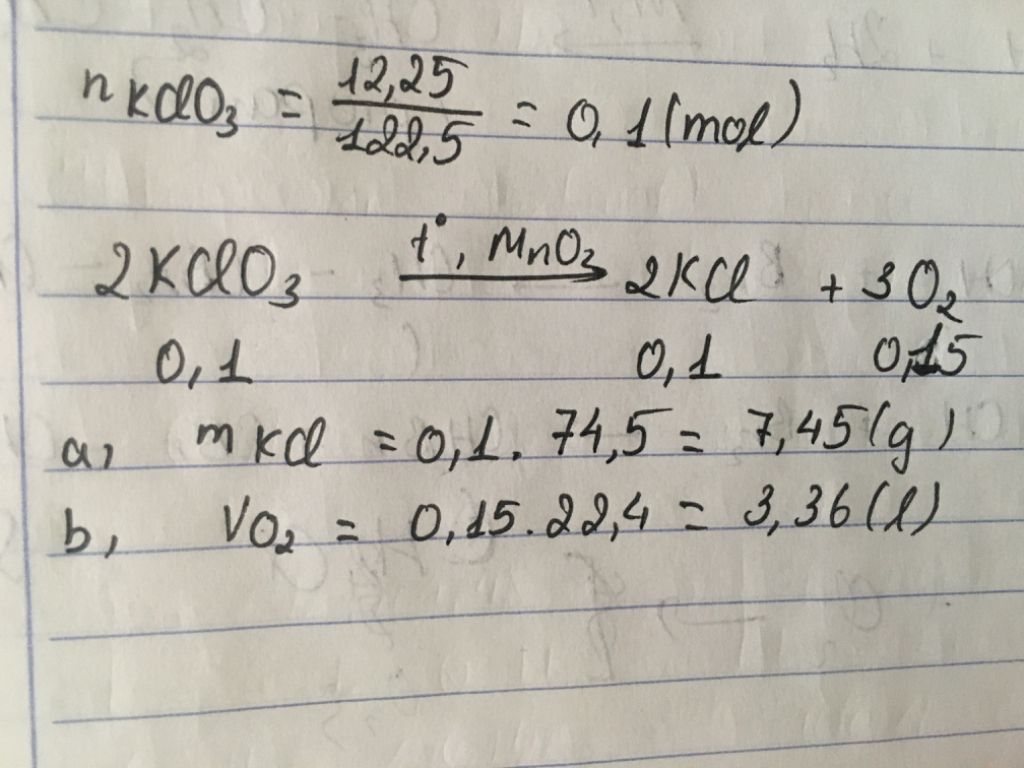 nKClO₃ = 12,25 / 122,5 = 0,1 (mol)
2KClO₃ —t°, MnO₂→ 2KCl + 3O₂
0,1 0,1 0,15
a, mKCl = 0,1. 74,5 = 7,45 (g)
b, VO₂ = 0,15.22,4 = 3,36 (l)